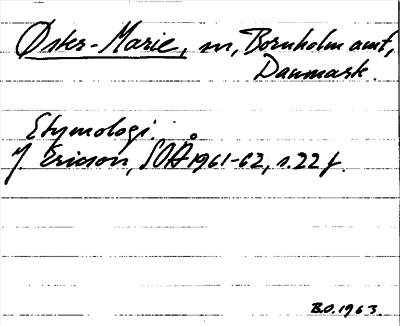 Øster-Marie, sn, Bornholm amt,
Danmark.
Etymologi.
J. Ericson, SOÅ 1961-62, s. 22 f.
B.O. 1963.